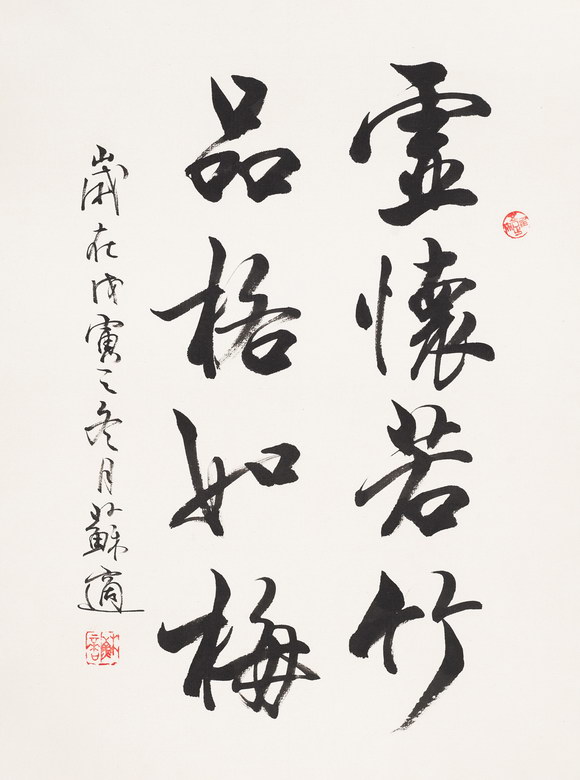 虚懷若竹
品格如梅
歲在戊寅之冬月蘇適